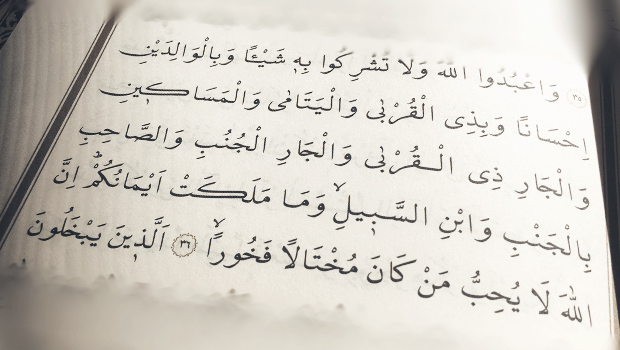 ﴿٣٥﴾ وَاعْبُدُوا اللّٰهَ وَلَا تُشْرِكُوا بِهٖ شَيْـًٔا وَبِالْوَالِدَيْنِ
اِحْسَانًا وَبِذِى الْقُرْبٰى وَالْيَتَامٰى وَالْمَسَاكٖينِ
وَالْجَارِ ذِى الْقُرْبٰى وَالْجَارِ الْجُنُبِ وَالصَّاحِبِ
بِالْجَنْبِ وَابْنِ السَّبٖيلِۙ وَمَا مَلَكَتْ اَيْمَانُكُمْۜ اِنَّ
اللّٰهَ لَا يُحِبُّ مَنْ كَانَ مُخْتَالًا فَخُورًاۙ ﴿٣٦﴾ اَلَّذٖينَ يَبْخَلُونَ